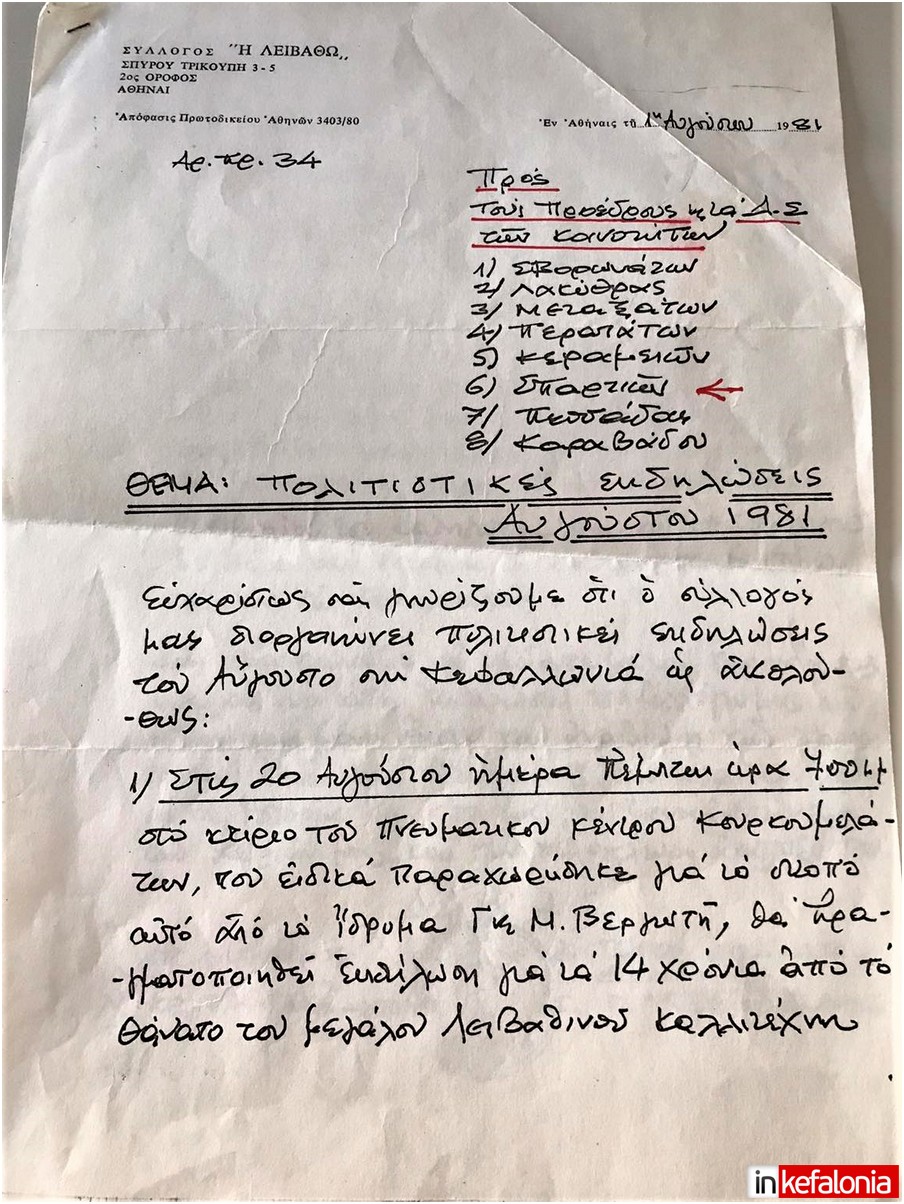 ΣΥΛΛΟΓΟΣ "Η ΛΕΙΒΑΘΩ,,
ΣΠΥΡΟΥ ΤΡΙΚΟΥΠΗ 3-5
2ος ΟΡΟΦΟΣ
ΑΘΗΝΑΙ
Ἀπόφασις Πρωτοδικείου Ἀθηνῶν 3403/80
Ἐν Ἀθήναις τῇ 1η Αὐγούστου 1981
Αρ. πρ. 34
Πρός
τούς Προέδρους κ τά Δ.Σ
τῶν κοινοτήτων
1) Σβορωνάτων
2) Λακύθρας
3) Μεταξάτων
4) Περατάτων
5) Κεραμειῶν
6) Σπαρτιῶν
7) Πεσσάδας
8) Καραβάδου
ΘΕΜΑ: Πολιτιστικές εκδηλώσεις
Αυγούστου 1981
Εὐχαρίστως σᾶς γνωρίζουμε ὅτι ὁ σύλλογός
μας διοργανώνει πολιτιστικές εκδηλώσεις
τόν Αὔγουστο στή Κεφαλλωνιά ὡς ἀκολού-
-θως:
1) Στίς 20 Αυγούστου ἡμέρα Πέμπτη ὥρα 7
στό κτίριο τοῦ Πνευματικοῦ κέντρου Κουρκουμελά-
των, που εἰδικά παραχωρήθηκε γιά τό σκοπό
αὐτό ἀπό τό Ἵδρυμα Γης Μ. Βεργωτή, θά πρα-
-γματοποιηθεῖ ἐκδήλωση γιά τά 14 χρόνια ἀπό τό
θάνατο του μεγάλου Λειβαθινοῦ καλλιτέχνη
inkefalonia